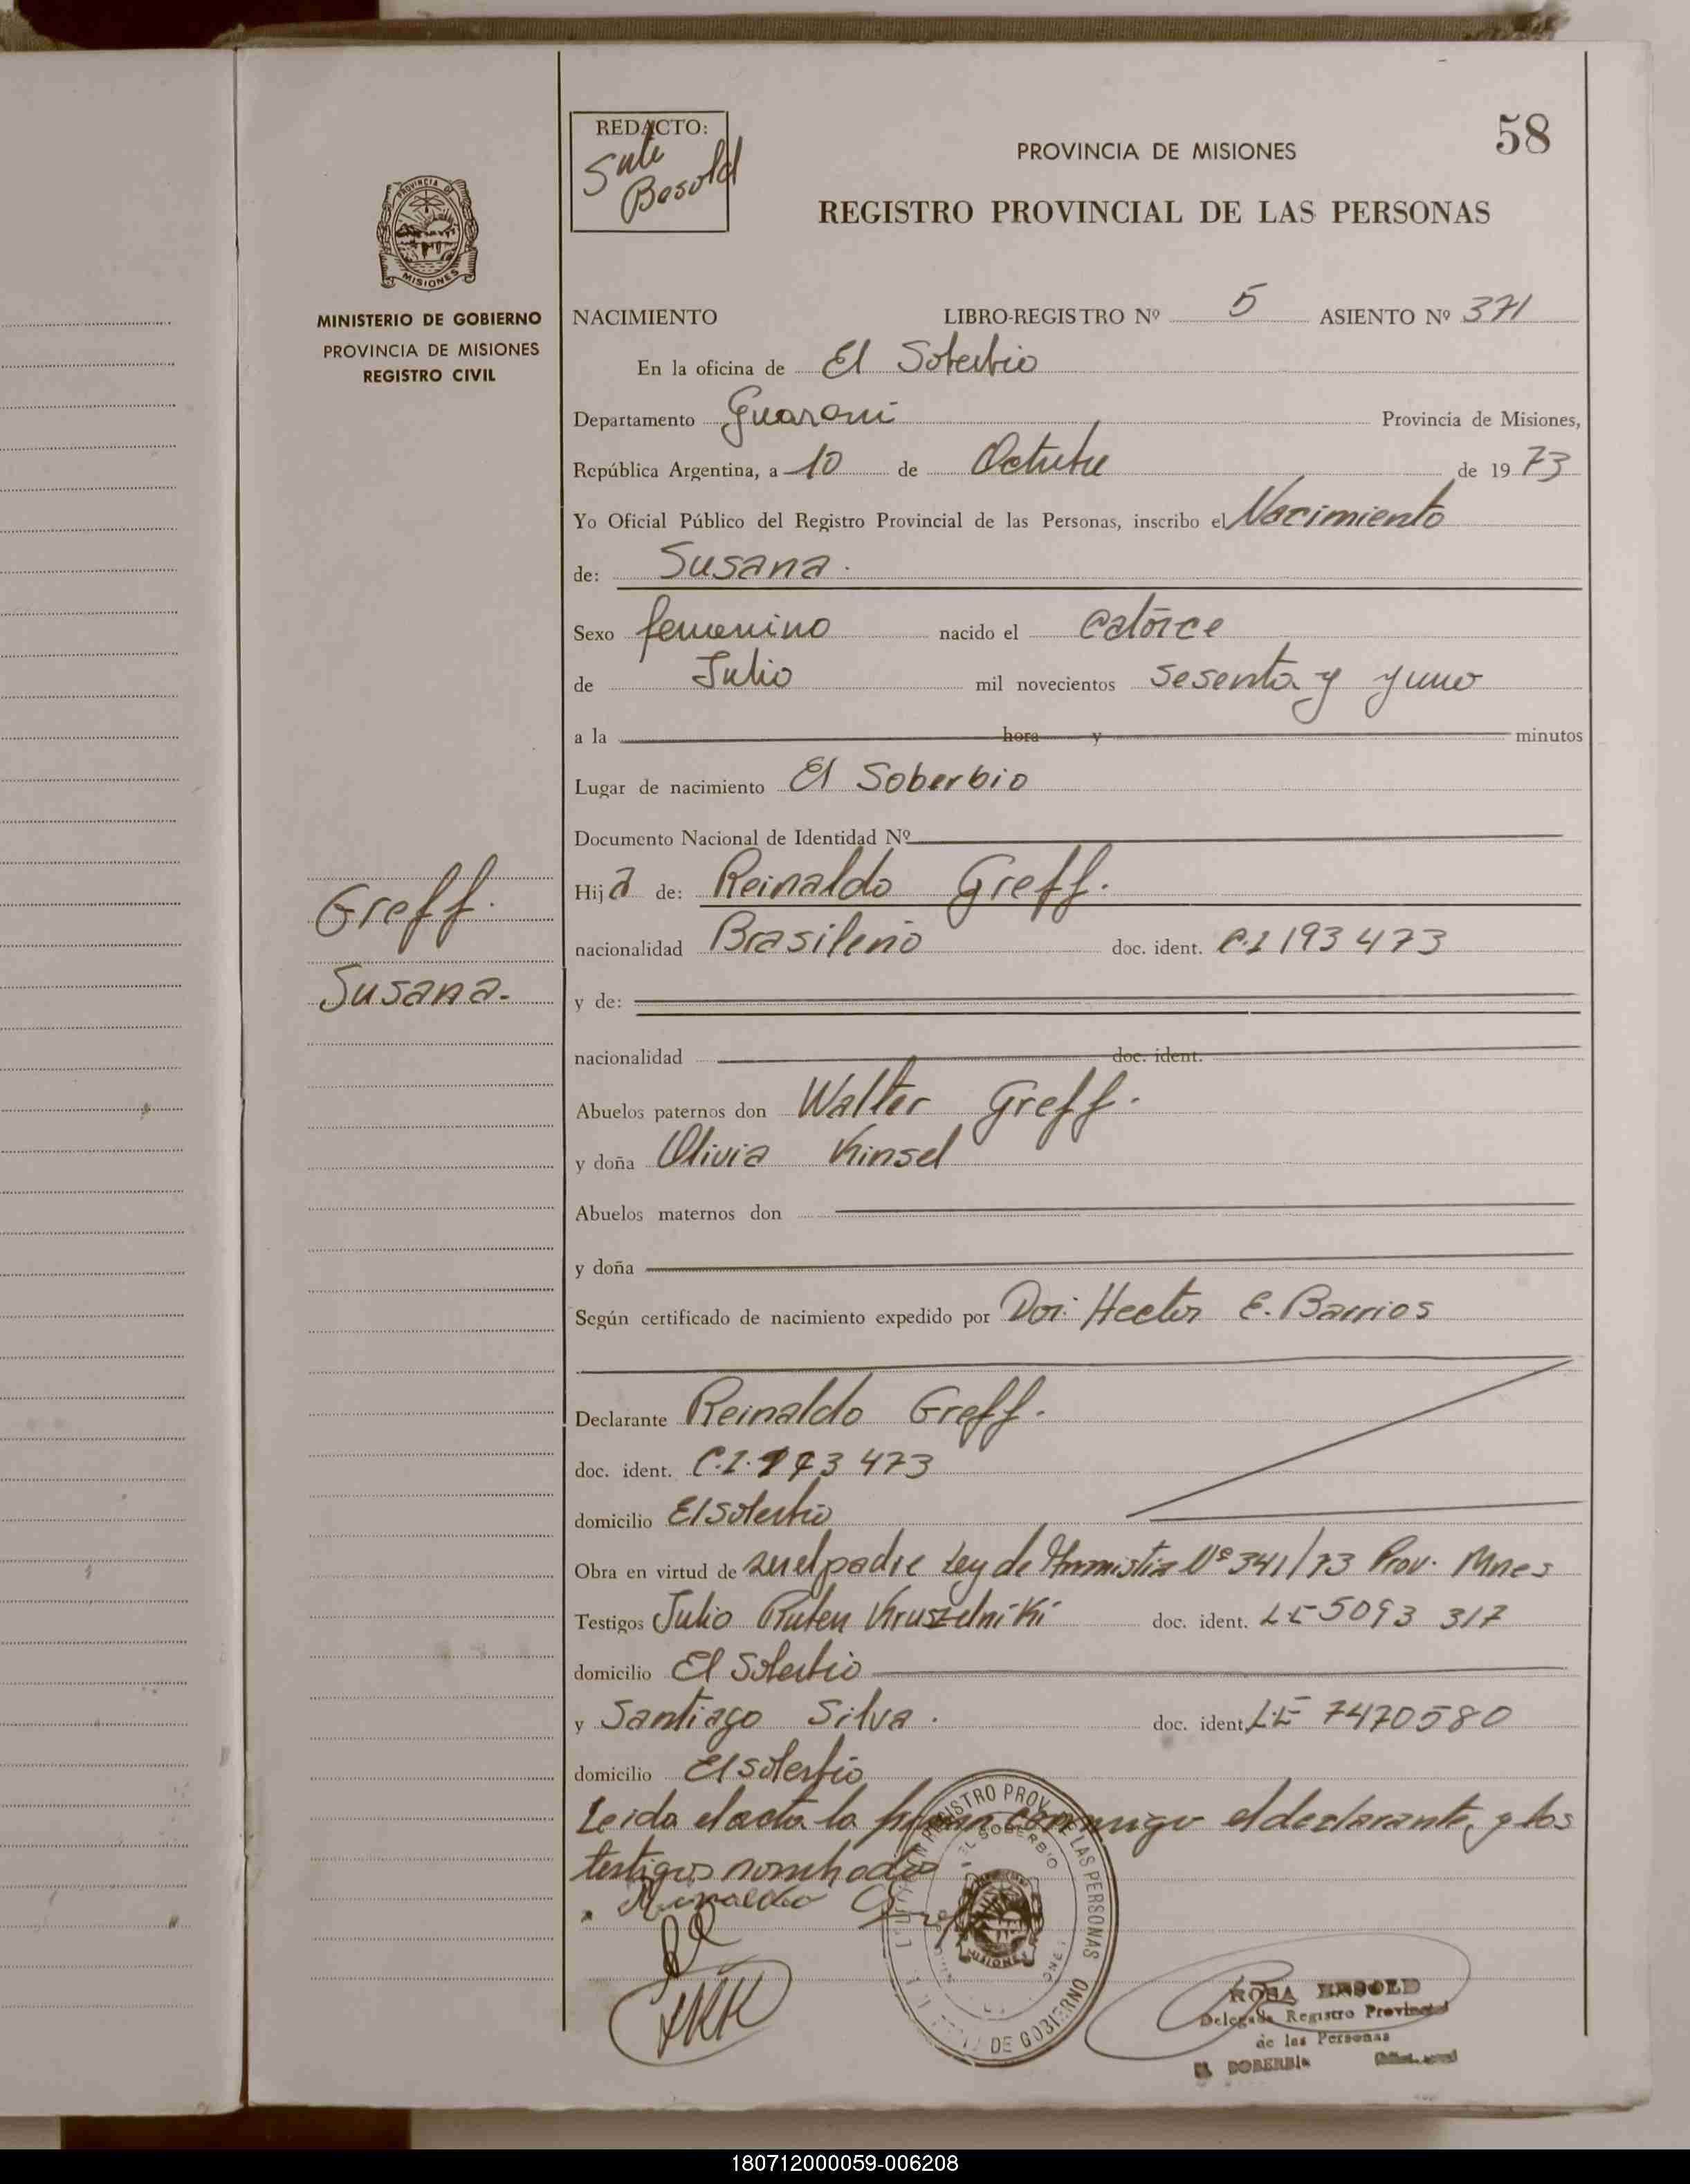 58
REDACTO:
Besold
PROVINCIA DE MISIONES
REGISTRO PROVINCIAL DE LAS PERSONAS
PROVINCIA DE
MISIONES
MINISTERIO DE GOBIERNO
PROVINCIA DE MISIONES
REGISTRO CIVIL
NACIMIENTO LIBRO-REGISTRO Nº 5 ASIENTO Nº 371
En la oficina de El Soberbio
Departamento Guarani Provincia de Misiones,
República Argentina, a 10 de Octubre de 1973
Yo Oficial Público del Registro Provincial de las Personas, inscribo el Nacimiento
de: Susana.
Sexo femenino nacido el catorce
de Julio mil novecientos sesenta y yuno
a la hora y minutos
Lugar de nacimiento El Soberbio
Documento Nacional de Identidad Nº
Hija de: Reinaldo Greff.
Greff.
nacionalidad Brasileño doc. ident. C.I 193473
Susana.
y de:
nacionalidad doc. ident.
Abuelos paternos don Walter Greff.
y doña Olivia Kinsel
Abuelos maternos don
y doña
Según certificado de nacimiento expedido por Hector E. Barrios
Declarante Reinaldo Greff.
doc. ident. C.I. 193 473
domicilio El Soberbio
Obra en virtud de ser el padre Ley de Amnistia Nº 341/73 Prov. Mnes
Testigos Julio Ruben Kruszelniki doc. ident. L.E 5093 317
domicilio El Soberbio
y Santiago Silva. doc. ident. L.E 7470580
domicilio El Soberbio
Leida el acta la firman conmigo el declarante, y los
testigos nombrados
Reinaldo Greff
REGISTRO PROV. DE LAS PERSONAS
EL SOBERBIO
MISIONES
DE GOBIERNO
ROSA BESOLD
Delegada Registro Provincial
de las Personas
EL SOBERBIO
180712000059-006208